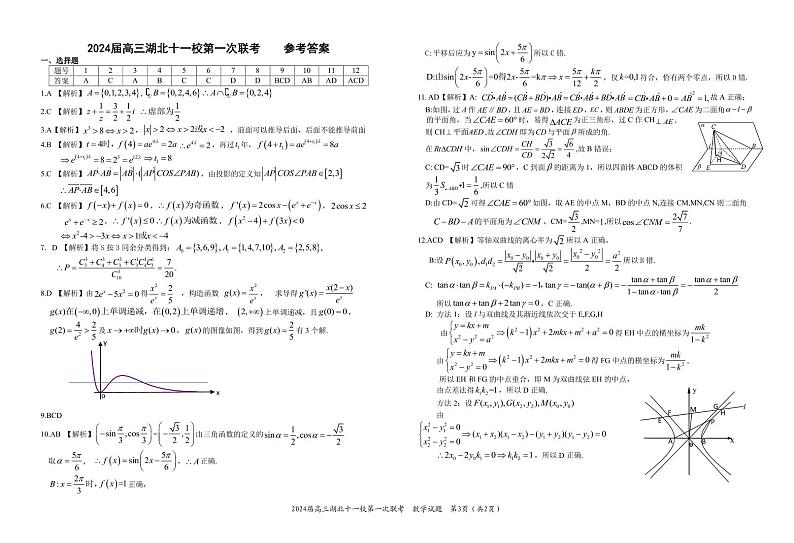 2024届高三湖北十一校第一次联考 参考答案
一、选择题
题号 1 2 3 4 5 6 7 8 9 10 11 12
答案 A C A B C C D D BCD AB AD ACD
1.A 【解析】A={0,1,2,3,4}, ∁ᵤB={0,2,4,6} ∴A∩∁ᵤB={0,2,4}
2.C 【解析】z+1/z=3/2+1/2 i ∴虚部为1/2
3.A【解析】x³>8⇔x>2, |x|>2⇔x>2或x<-2 ，前面可以推导后面，后面不能推导前面
4.B 【解析】t=4时, f(4)=ae^{4λ}=2a ∴e^{4λ}=2，再过t₁年，f(4+t₁)=ae^{(4+t₁)λ}=8a
⇒e^{(4+t₁)λ}=8=2³=e^{12λ}⇒t₁=8
5.C 【解析】AP·AB=|AB|·(|AP|COS⟨PAB⟩)，由投影的定义知|AP|COS⟨PAB⟩∈[2,3]
∴AP·AB∈[4,6]
6.C 【解析】f(-x)+f(x)=0, ∴f(x)为奇函数，f'(x)=2cosx-(e^x+e^{-x})，2cosx≤2
e^x+e^{-x}≥2，∴f'(x)≤0∴f(x)为减函数，f(x²-4)+f(3x)<0
⇔x²-4>-3x⇔x>1或x<-4
7．D 【解析】将S按3同余分类得到：A₀={3,6,9}, A₁={1,4,7,10}, A₂={2,5,8},
∴P=(C₃³+C₄³+C₃³+C₃¹C₄¹C₃¹)/C₁₀³=7/20.
8.D 【解析】由2e^x-5x²=0得x²/e^x=2/5 ，构造函数 g(x)=x²/e^x， 求导得g'(x)=x(2-x)/e^x
g(x)在(-∞,0)上单调递减，在(0,2)上单调递增，(2,+∞)上单调递减，且g(0)=0，
g(2)=4/e²>2/5及x→+∞时g(x)→0，g(x)的图像如图，得到g(x)=2/5有3个解.
y
o x
9.BCD
10.AB 【解析】(-sinπ/3,cosπ/3)=(-√3/2,1/2)由三角函数的定义的sinα=1/2,cosα=-√3/2
取α=5π/6， ∴f(x)=sin(2x-5π/6)，∴A正确.
B:x=2π/3时,f(x)=1正确，
C:平移后应为y=sin(2x+5π/6)所以C错.
D:由sin(2x-5π/6)=0得2x-5π/6=kπ⇒x=5π/12+kπ/2，仅k=0,1符合，恰有两个零点，所以D错.
11.AD【解析】A: CD·AB=(CB+BD)·AB=CB·AB+BD·AB=CB·AB+0=AB²=1,故A正确;
B:如图，过A作AE∥BD，且AE=BD，连接ED，EC，则ABDE为正方形，∠CAE为二面角α-l-β
的平面角，当∠CAE=60°时，易得△ACE为正三角形，过C作CH⊥AE，
则CH⊥平面AED,故∠CDH即为CD与平面β所成的角.
在Rt△CDH中，sin∠CDH=CH/CD=√3/(2√2)=√6/4,故B错误;
C: CD=√3时∠CAE=90°，C到面β的距离为1，所以四面体ABCD的体积
为1/3 S△ABD·1=1/6,所以C错
D:由CD=√2可得∠CAE=60°如图，取AE的中点M，BD的中点N,连接CM,MN,CN则二面角
C-BD-A的平面角为∠CNM，CM=√3/2,MN=1,所以cos∠CNM=2√7/7.
12.ACD 【解析】等轴双曲线的离心率为√2所以A正确，
B:设P(x₀,y₀),d₁d₂=|x₀-y₀|/√2·|x₀+y₀|/√2=|x₀²-y₀²|/2=a²/2所以B错.
C: tanα·tanβ=k_PA·(-k_PB)=-1,tanγ=-tan(α+β)=-(tanα+tanβ)/(1-tanα·tanβ)=-(tanα+tanβ)/2
所以tanα+tanβ+2tanγ=0，C正确.
D: 方法1：设l与双曲线及其渐近线依次交于E,F,G,H
由{y=kx+m x²-y²=a²⇒(k²-1)x²+2mkx+m²+a²=0得EH中点的横坐标为mk/(1-k²)
由{y=kx+m x²-y²=0⇒(k²-1)x²+2mkx+m²=0得FG中点的横坐标为mk/(1-k²)，
所以EH和FG的中点重合，即M为双曲线弦EH的中点，
由点差法得k₁k₂=1，所以D正确.
方法2：设F(x₁,y₁),G(x₂,y₂),M(x₀,y₀)
由
{x₁²-y₁²=0 x₂²-y₂²=0⇒(x₁+x₂)(x₁-x₂)-(y₁+y₂)(y₁-y₂)=0
∴2x₀-2y₀k₁=0⇒k₁k₂=1，所以D正确.
2024届高三湖北十一校第一次联考 数学试题 第3页（共2页）